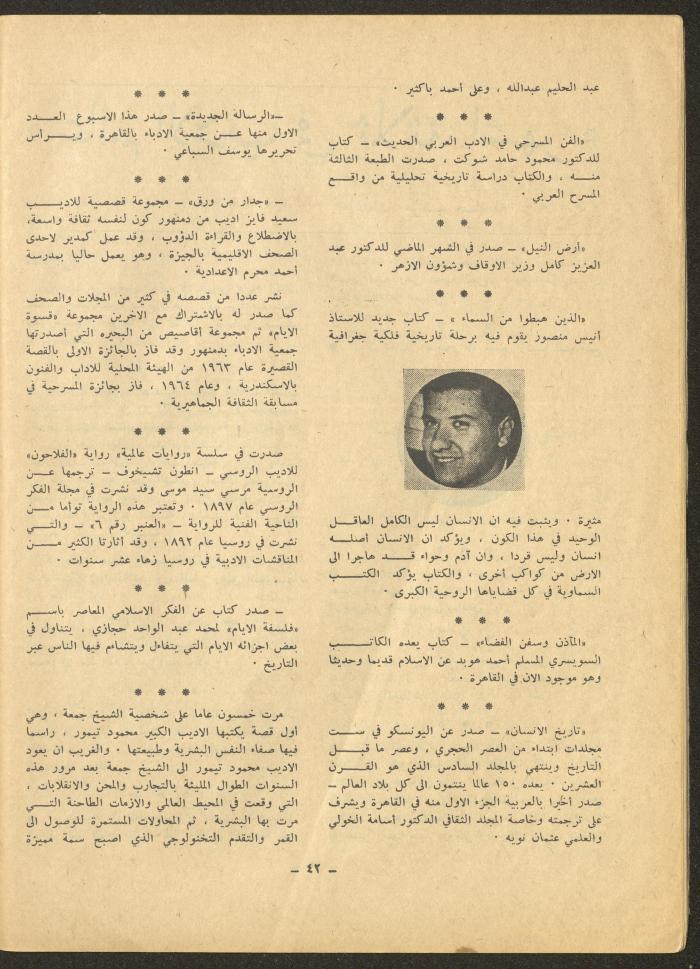 عبد الحليم عبدالله ، وعلى أحمد باكثير ٠
* * *
«الفن المسرحي في الادب العربي الحديث» ــ كتاب
للدكتور محمود حامد شوكت ، صدرت الطبعة الثالثة
منــــه ، والكتاب دراسة تاريخية تحليلية من واقـــع
المسرح العربي ٠
* * *
«أرض النيل» ــ صدر في الشهر الماضي للدكتور عبد
العزيز كامل وزير الاوقاف وشؤون الازهر ٠
* * *
«الذين هبطوا من السماء » ــ كتاب جديد للاستاذ
أنيس منصور يقوم فيه برحلة تاريخية فلكية جغرافية
مثيرة ٠ ويثبت فيه ان الانسان ليس الكامل العاقــل
الوحيد في هذا الكون ، ويؤكد ان الانسان أصلـــه
انسان وليس قردا ، وان آدم وحواء قـــد هاجرا الى
الارض من كواكب أخرى ، والكتاب يؤكد الكتـــب
السماوية في كل قضاياها الروحية الكبرى ٠
* * *
«المآذن وسفن الفضاء» ــ كتاب يعده الكاتـــب
السويسري المسلم أحمد هوبد عن الاسلام قديما وحديثا
وهو موجود الان في القاهرة ٠
* * *
«تاريخ الانسان» ــ صدر عن اليونسكو في ســـت
مجلدات ابتداء من العصر الحجري ، وعصر ما قبـــل
التاريخ وينتهي بالمجلد السادس الذي هو القـــرن
العشرين ٠ يعده ١٥٠ عالما ينتمون الى كل بلاد العالم ــ
صدر أخيرا بالعربية الجزء الاول منه في القاهرة ويشرف
على ترجمته وخاصة المجلد الثقافي الدكتور أسامة الخولي
والعلمي عثمان نويه ٠
* * *
ــ«الرسالة الجديدة» ــ صدر هذا الاسبوع العـــدد
الاول منها عـــن جمعية الادباء بالقاهرة ، ويـــرأس
تحريرها يوسف السباعي ٠
* * *
ــ «جدار من ورق» ــ مجموعة قصصية للاديـــب
سعيد فايز اديب من دمنهور كون لنفسه ثقافة واسعة،
بالاضطلاع والقراءة الدؤوب ، وقد عمل كمدير لاحدى
الصحف الاقليمية بالجيزة ، وهو يعمل حاليا بمدرسة
أحمد محرم الاعدادية ٠
نشر عددا من قصصه في كثير من المجلات والصحف
كما صدر له بالاشتراك مع الاخرين مجموعة «قسوة
الايام» ثم مجموعة أقاصيص من البحيره التي أصدرتها
جمعية الادباء بدمنهور وقد فاز بالجائزة الاولى بالقصة
القصيرة عام ١٩٦٣ من الهيئة المحلية للاداب والفنون
بالاسكندرية ، وعام ١٩٦٤ ، فاز بجائزة المسرحية في
مسابقة الثقافة الجماهيرية ٠
* * *
صدرت في سلسة «روايات عالمية» رواية «الفلاحون»
للاديب الروسي ــ انطون تشيخوف ــ ترجمها عـــن
الروسية مرسي سيد موسى وقد نشرت في مجلة الفكر
الروسي عام ١٨٩٧ ٠ وتعتبر هذه الرواية توأما مـــن
الناحية الفنية للرواية ــ «العنبر رقم ٦» ــ والتـــي
نشرت في روسيا عام ١٨٩٢ ، وقد أثارتا الكثير مـــن
المناقشات الادبية في روسيا زهاء عشر سنوات ٠
* * *
ــ صدر كتاب عن الفكر الاسلامي المعاصر باســـم
«فلسفة الايام» لمحمد عبد الواحد حجازي ، يتناول في
بعض اجزائه الايام التي يتفاءل ويتشاءم فيها الناس عبر
التاريخ ٠
* * *
مرت خمسون عاما على شخصية الشيخ جمعة ، وهي
أول قصة يكتبها الاديب الكبير محمود تيمور ، راسما
فيها صفاء النفس البشرية وطبيعتها ٠ والغريب ان يعود
الاديب محمود تيمور الى الشيخ جمعة بعد مرور هذه
السنوات الطوال المليئة بالتجارب والمحن والانقلابات ،
التي وقعت في المحيط العالمي والازمات الطاحنة التـــي
مرت بها البشرية ، ثم المحاولات المستمرة للوصول الى
القمر والتقدم التخنولوجي الذي اصبح سمة مميزة
ــ ٤٢ ــ